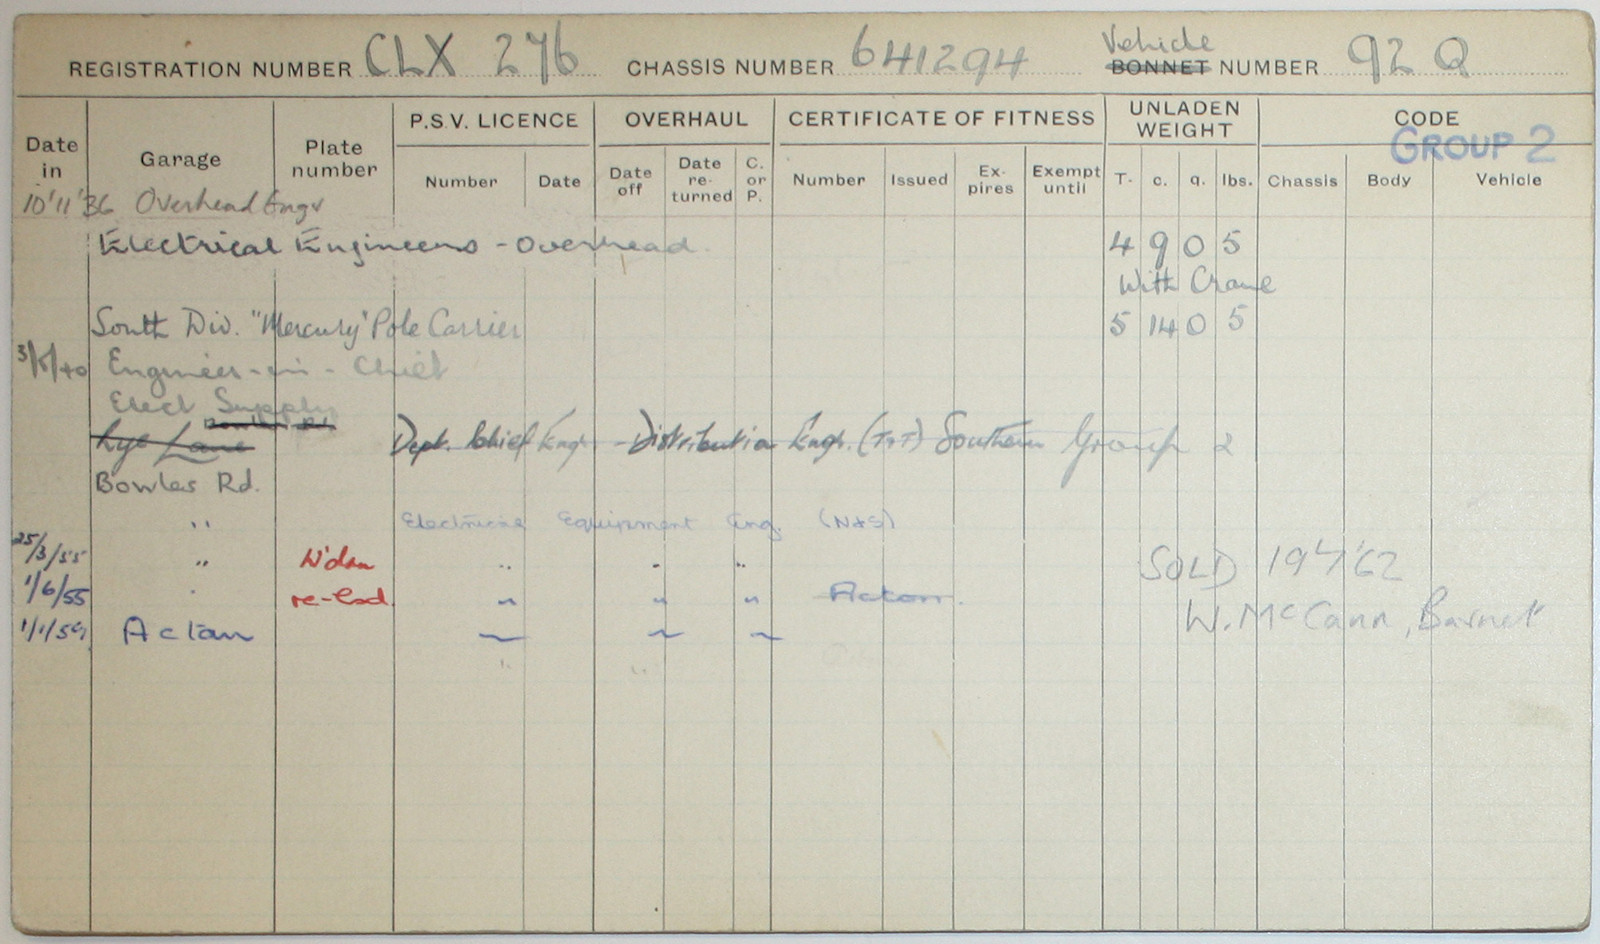 REGISTRATION NUMBER CLX 276 CHASSIS NUMBER 641294 Vehicle BONNET NUMBER 92 Q
Date in Garage Plate number P.S.V. LICENCE Number Date OVERHAUL Date off Date re-turned C. or P. CERTIFICATE OF FITNESS Number Issued Ex-pires Exempt until UNLADEN WEIGHT T. c. q. lbs. CODE Chassis Body Vehicle
GROUP 2
10'11'36 Overhead Engr
Electrical Engineers - Overhead. 4 9 0 5
With Crane
South Div. "Mercury" Pole Carrier 5 14 0 5
3/5/40 Engineer-in-Chief
Elect Supply
Bowles Rd.
Lye Lane Dept. Chief Engr. - Distribution Engr. (T&T) Southern Group 2
Bowles Rd.
" Electrical Equipment Eng. (N&S)
25/3/55 " W'dn " " " SOLD 19'7'62
1/6/55 " re-lsd. " " " Acton. W. McCann, Barnet
1/1/59 Acton " " "
" "